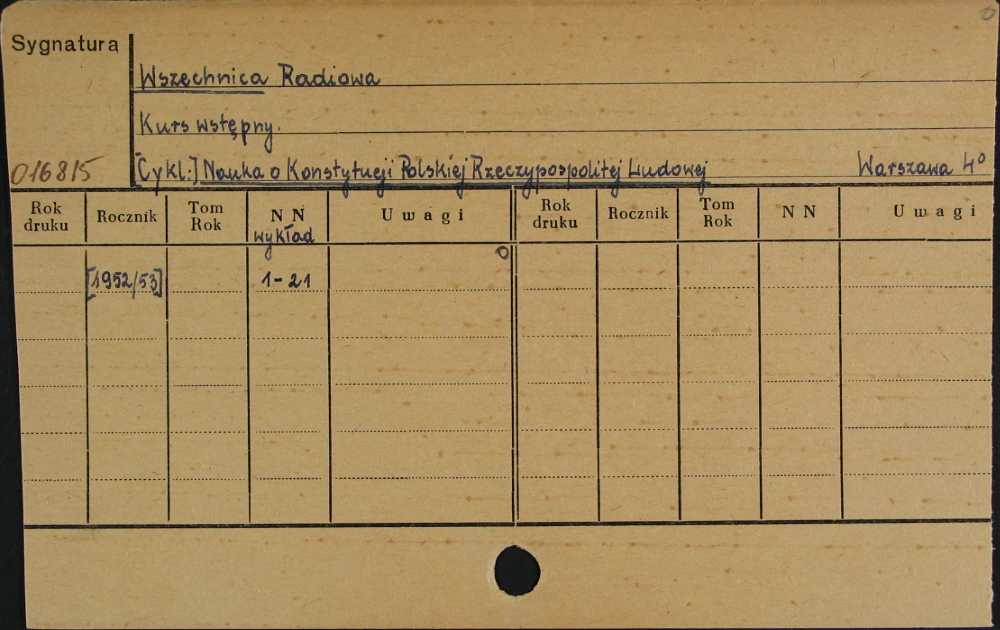 0
Sygnatura
Wszechnica Radiowa
Kurs wstępny.
016815 [Cykl:] Nauka o Konstytucji Polskiej Rzeczypospolitej Ludowej Warszawa 4°
Rok druku Rocznik Tom Rok N N wykład Uwagi Rok druku Rocznik Tom Rok N N Uwagi
0
[1952/53] 1-21